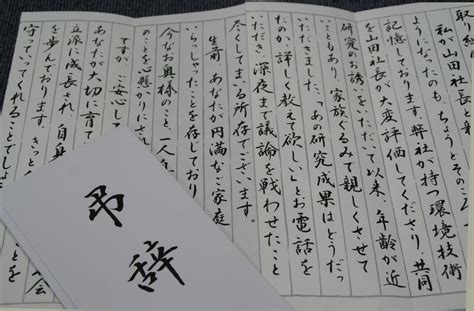 取り組
私が山田社長と
ようになったのも、ちょうどその
記憶しております。弊社が持つ環境技術
を山田社長が大変評価してくださり、共同
研究のお誘いをいただいて以来、年齢が近
いこともあり、家族ぐるみで親しくさせて
いただきました。「あの研究成果はどうだっ
たのか詳しく教えて欲しい」とお電話を
いただき、深夜まで議論を戦わせたこと
尽してまいる所存でございます。
生前、あなたが円満なご家庭
いらっしゃったことを存じており
今なお奥様のこと、一人
のことを心懸かりにされ
ですが、ご安心して
あなたが大切に育て
立派に成長され、自身
を歩んでおります。きっと
守っていてくれることでしょ
弔辞